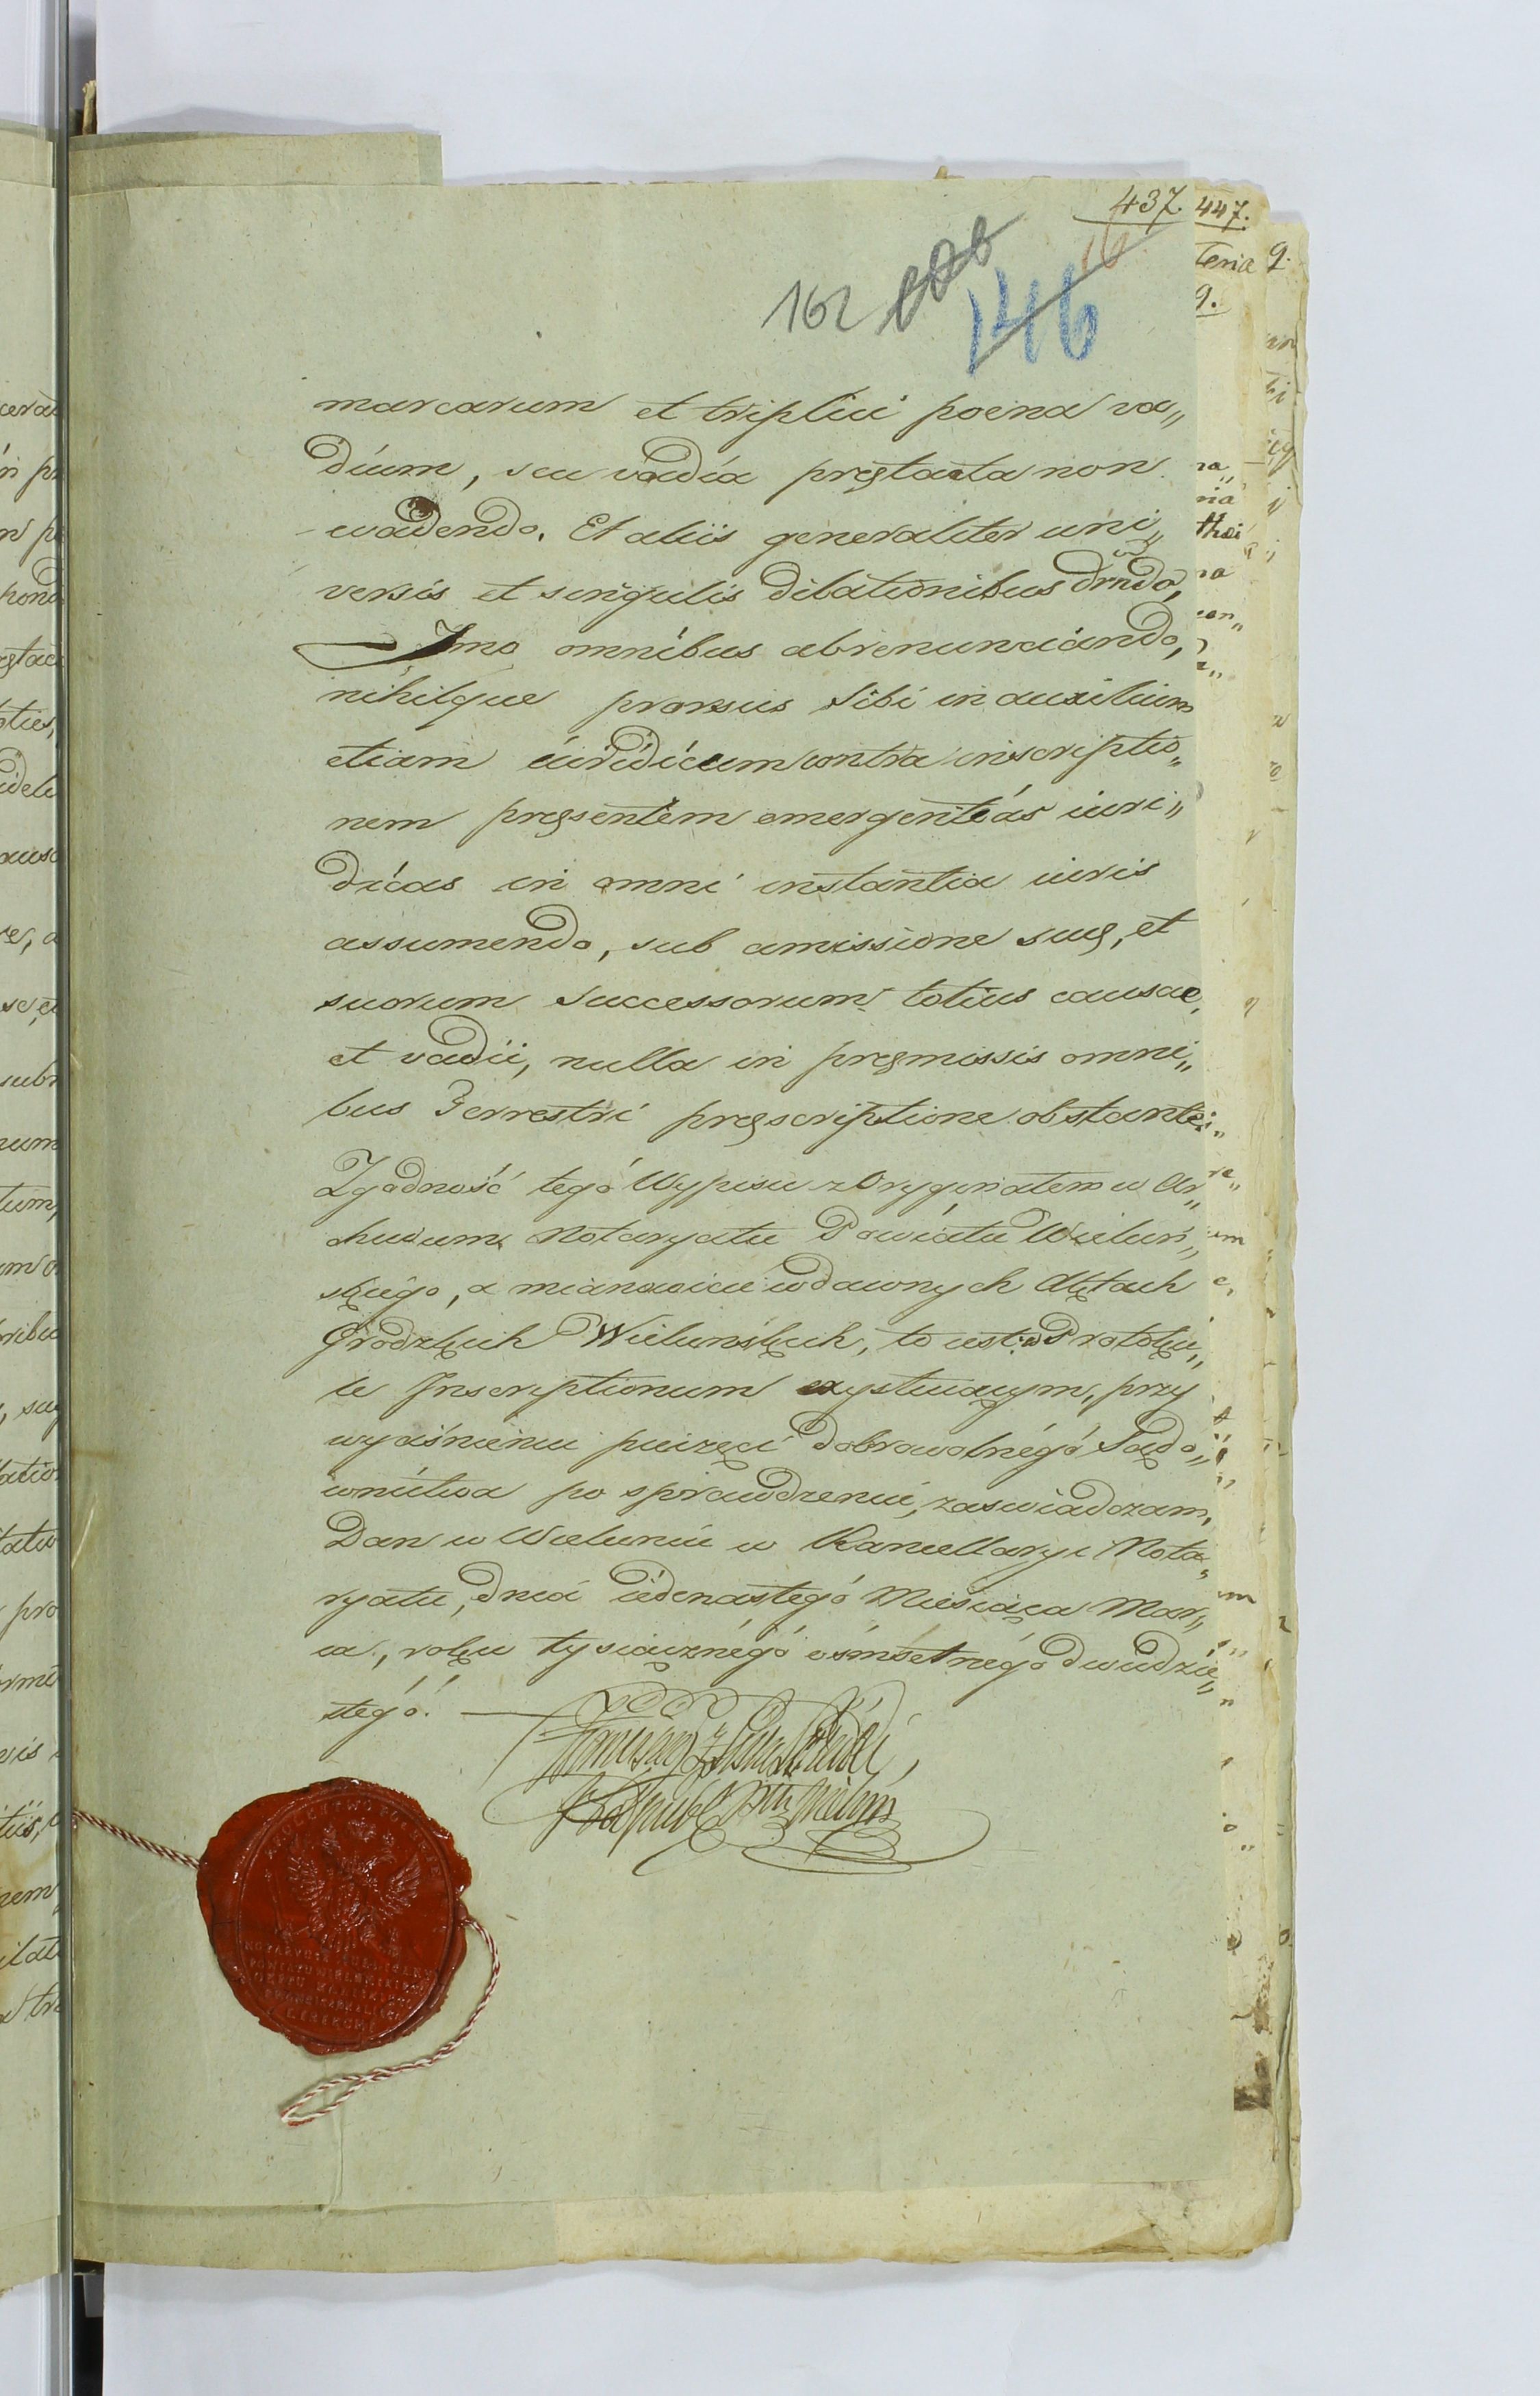 437. 447.
16
162 146
marcarum et triplici poena va„
dium, seu vadia pręstacta non
evadendo. Et aliis generaliter uni„
versis et singulis dilationibus drndo,
Imo omnibus abrenunciando,
nihilque prorsus sibi in auxilium
etiam iuridicum contra inscriptio„
nem pręsentem emergentias iuri„
dicas in omni instantia iuris
assumendo, sub amissione suę, et
suorum Successorum totius causae,
et vadii, nulla in pręmissis omni„
bus Terrestri pręscriptione obstante.
Zgodność tegó Wypisu z Oryginałem w Ar„
chiwum Notaryatu Powiatu Wieluń„
skiego, a mianowicie w dawnych Aktach
Grodzkich Wieluńskich, to iest: w Protoku„
le Inscriptionum exystuiącym, przy
wyciśnieniu pieczęci dobrowolnégó Sądo„
wnictwa po sprawdzeniu, zaswiadczam,
Dan w Wieluniu w Kancellaryi Nota„
ryatu, dnia iedenastegó Miesiąca Mar„
ca, roku tysiącznégó ośmsetnégó dwudzie„
stégó.
KROLESTWO POLSKIE